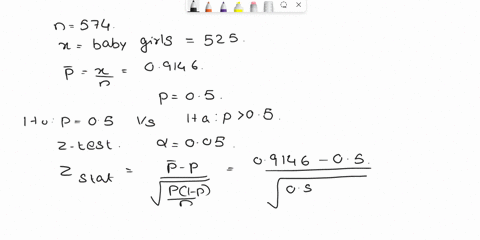 n=574.
x = baby girls = 525.
p̄ = x/n = 0.9146.
p=0.5.
H0: p=0.5 Vs Ha: p>0.5.
Z-test. α=0.05.
Z stat = p̄-p / √(p(1-p)/n) = 0.9146-0.5. / √(0.5